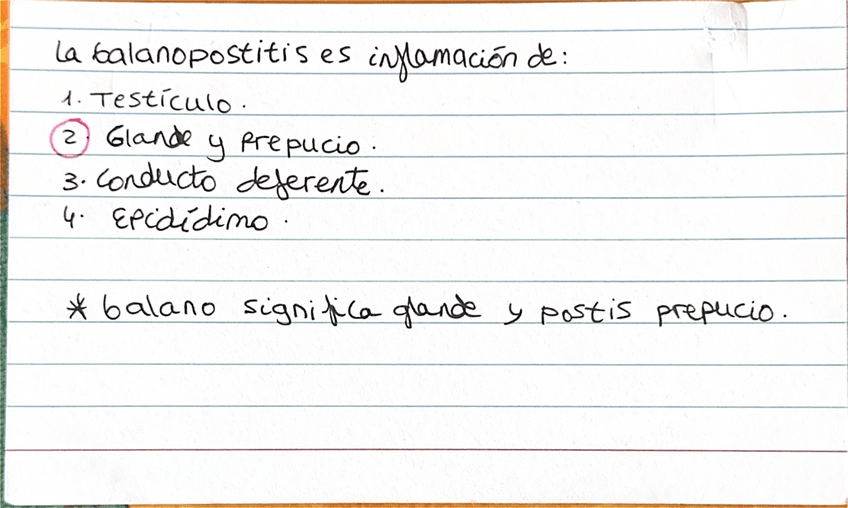 La balanopostitis es inflamación de:
1. Testículo.
2. Glande y prepucio.
3. Conducto deferente.
4. Epidídimo.
* balano significa glande y postis prepucio.